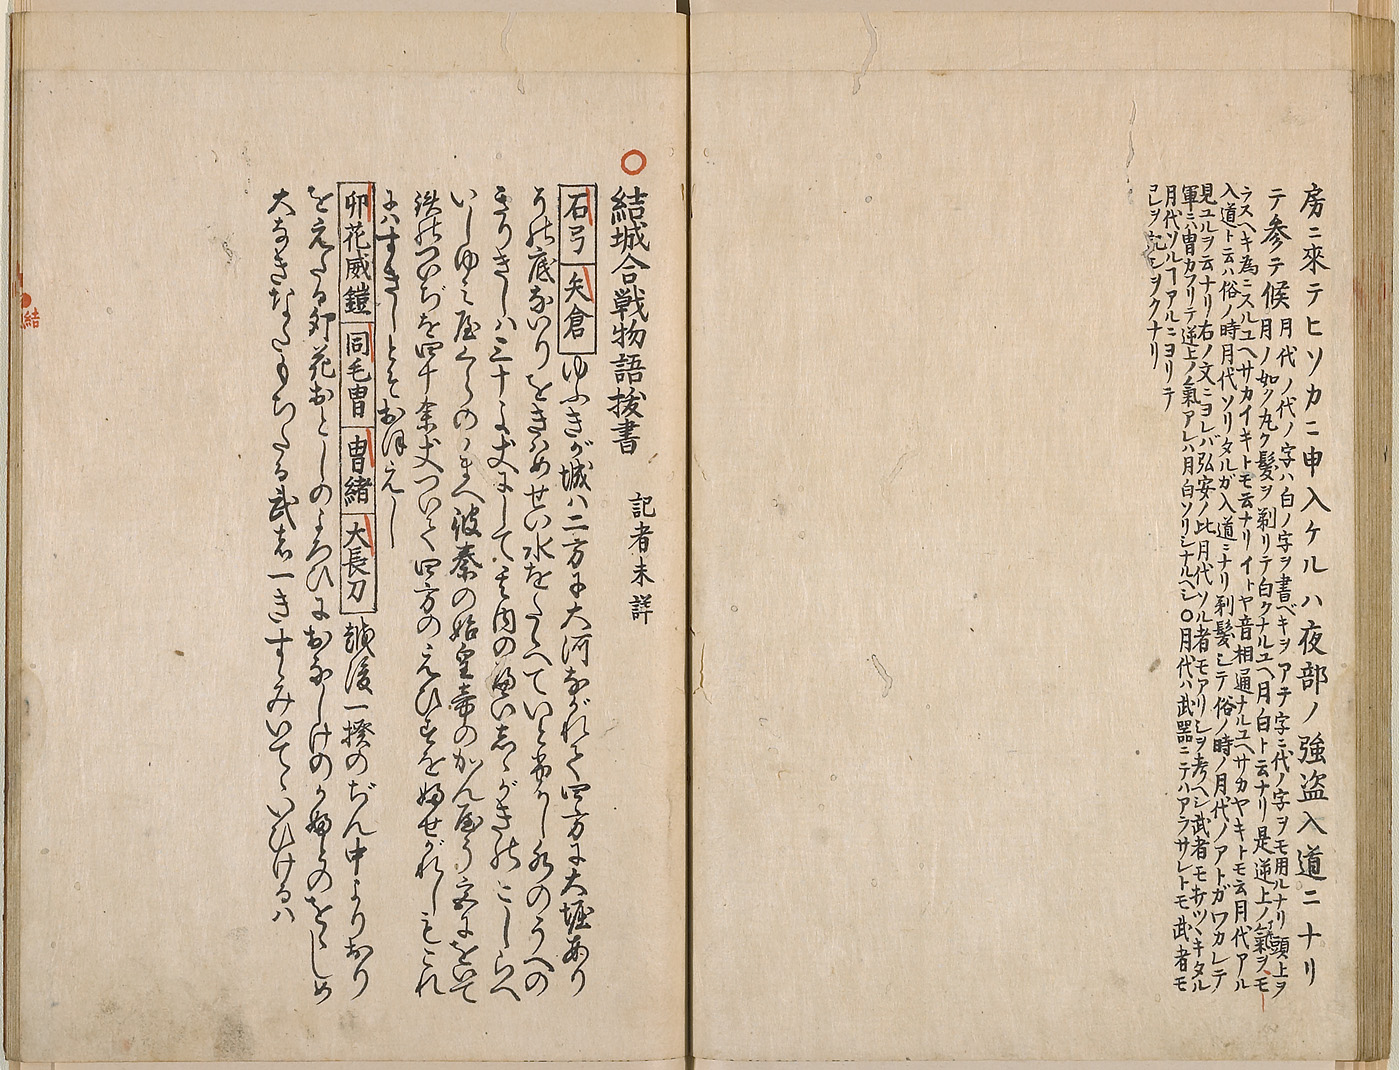 房ニ來テヒソカニ申入ケルハ夜部ノ強盗入道ニナリ
テ參テ候
月代ノ代ノ字ハ白ノ字ヲ書ベキヲアテ字ニ代ノ字ヲモ用ルナリ頭上ヲ
月ノ如ク丸ク髪ヲ剃リテ白クナルユヘ月白ト云ナリ是逆上ノ氣ヲモ
ラスヘキ為ニスルユヘサカイキトモ云ナリイトヤ音相通ナルユヘサカヤキトモ云月代アル
入道ト云ハ俗ノ時月代ソリタルガ入道ニナリ剃髪シテ俗ノ時ノ月代ノアトガワカレテ
見ユルヲ云ナリ右ノ文ニヨレバ弘安ノ比月代ソル者モアリシヲ考ヘシ武者モキツヽキタル
軍ニハ冑カフリテ逆上ノ氣アレハ月白ソリシナルヘシ〇月代ハ武器ニテハアラサレトモ武者モ
月代ソルコアルニヨリテ
記シヲクナリ
〇結城合戦物語抜書 記者未詳
石弓 矢倉 ゆふきが城ハ二方に大河ながれて四方に大堀あり
ほりの底
きりきしハ三十よ丈にして
いしゆミ屋くらのかまへ彼秦の始皇帝のかん
鉄のついぢを四十余丈ついて四方のえひすを
にハすきしとそおほえし
卯花威鎧 同毛冑 冑緒 大長刀 越後一揆のぢん中よりおり
をえたる卯花おとしのよろひにおなしけのかぶとのをゝしめ
大なきなたもちたる武者一きすゝミいてゝいひけるハ
結